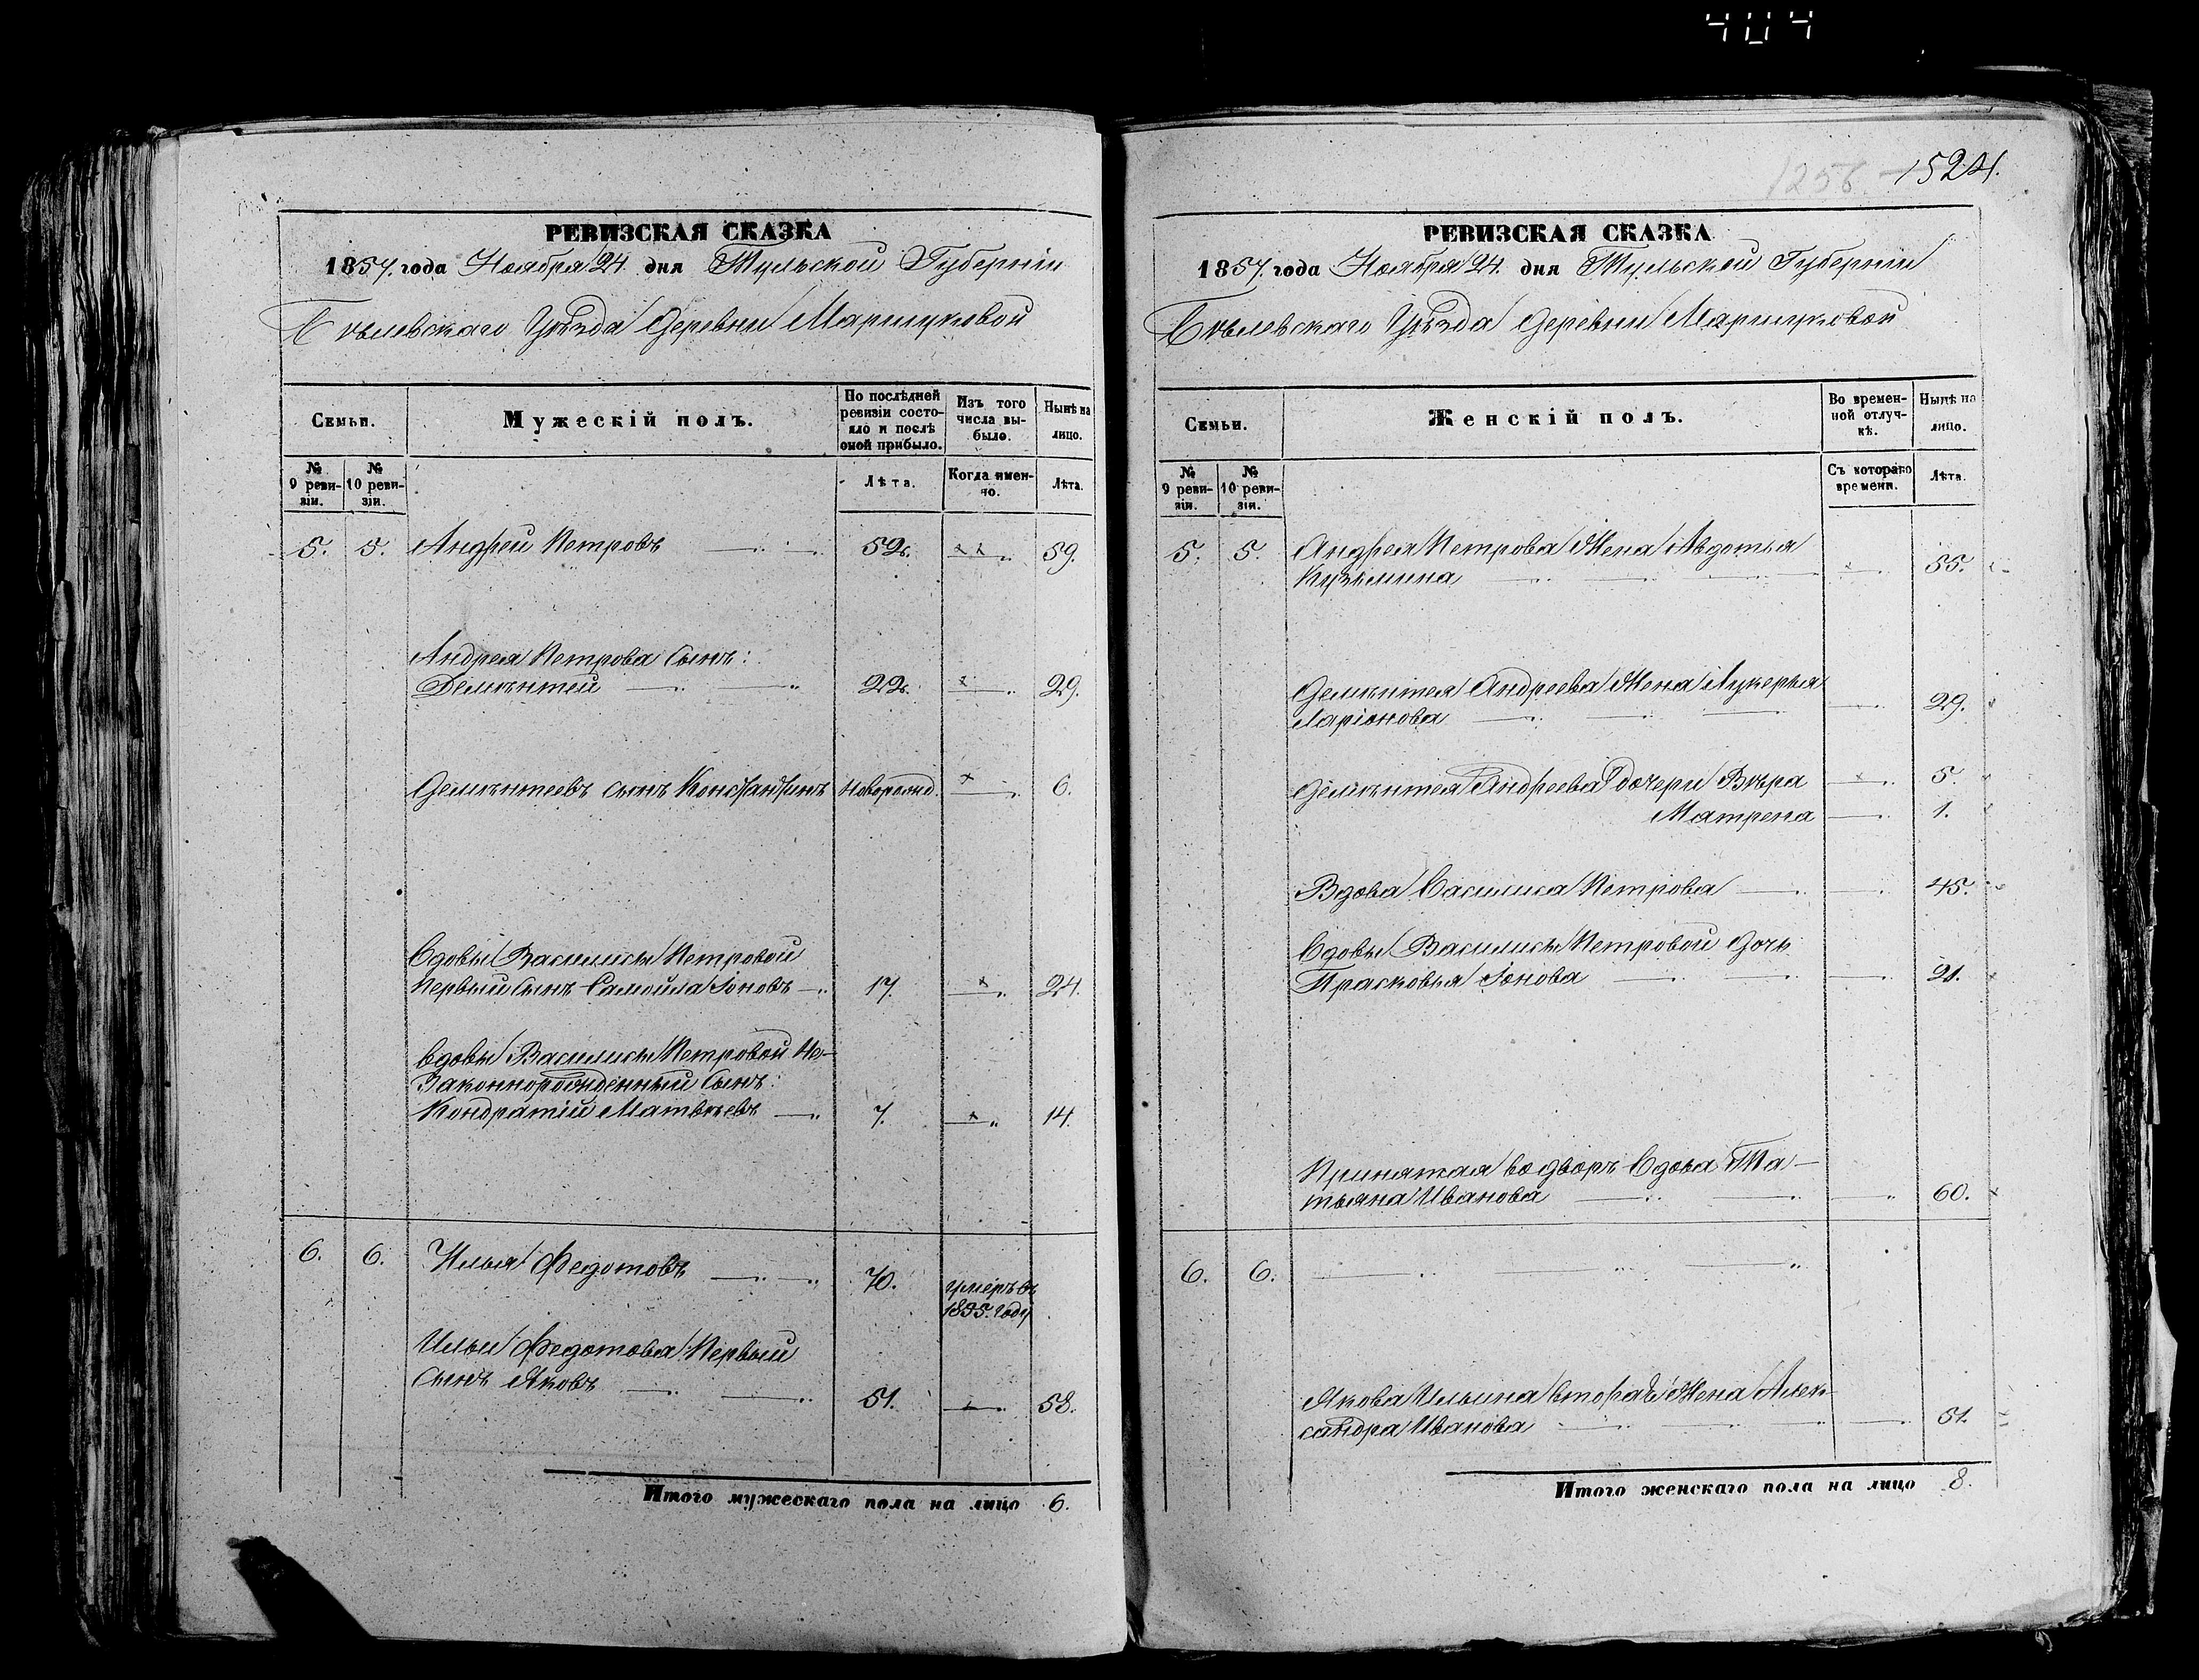 404
РЕВИЗСКАЯ СКАЗКА
1857. года Ноября 24. дня Тульской Губерніи
Бѣлевскаго Уѣзда Деревни
Семьи.
Мужескій полъ.
По послѣдней ревизіи состояло и послѣ оной прибыло.
Изъ того числа выбыло.
Нынѣ на лицо.
№ 9 ревизіи.
№ 10 ревизіи.
Лѣта.
Когда именно.
Лѣта.
5. 5. Андрей Петровъ 52. 59.
Андрея Петрова Сынъ:
Дементей 22. 29.
Дементеевъ сынъ Константинъ новорожд. 6.
Вдовы Василисы Петровой
Первый Сынъ Самойла Іоновъ 17. 24.
Вдовы Василисы Петровой Не-
Законнорожденный Сынъ:
Кондратій Матвѣевъ 7. 14.
6. 6. Илья Федотовъ 70. умеръ въ
1855. Году
Ильи Федотова Первый
Сынъ Яковъ 51. 58.
Итого мужескаго пола на лицо 6.
1256. 1524.
РЕВИЗСКАЯ СКАЗКА
1857. года Ноября 24. дня Тульской Губерніи
Бѣлевскаго Уѣзда Деревни
Семьи.
Женскій полъ.
Во временной отлучкѣ.
Нынѣ на лицо.
№ 9 ревизіи.
№ 10 ревизіи.
Съ котораго времени.
Лѣта.
5. 5. Андрея Петрова Жена Авдотья
Кузьмина 55.
Дементея Андреева Жена Лукерья
Ларіонова 29.
Дементея Андреева дочери Вѣра 5.
Матрена 1.
Вдова Василиса Петрова 45.
Вдовы Василисы Петровой Дочь
Прасковья Іонова 21.
Принятая во дворъ Вдова Та-
тьяна Иванова 60.
6. 6.
Якова Ильина вторая Жена Алек-
сандра Иванова 51.
Итого женскаго пола на лицо 8.